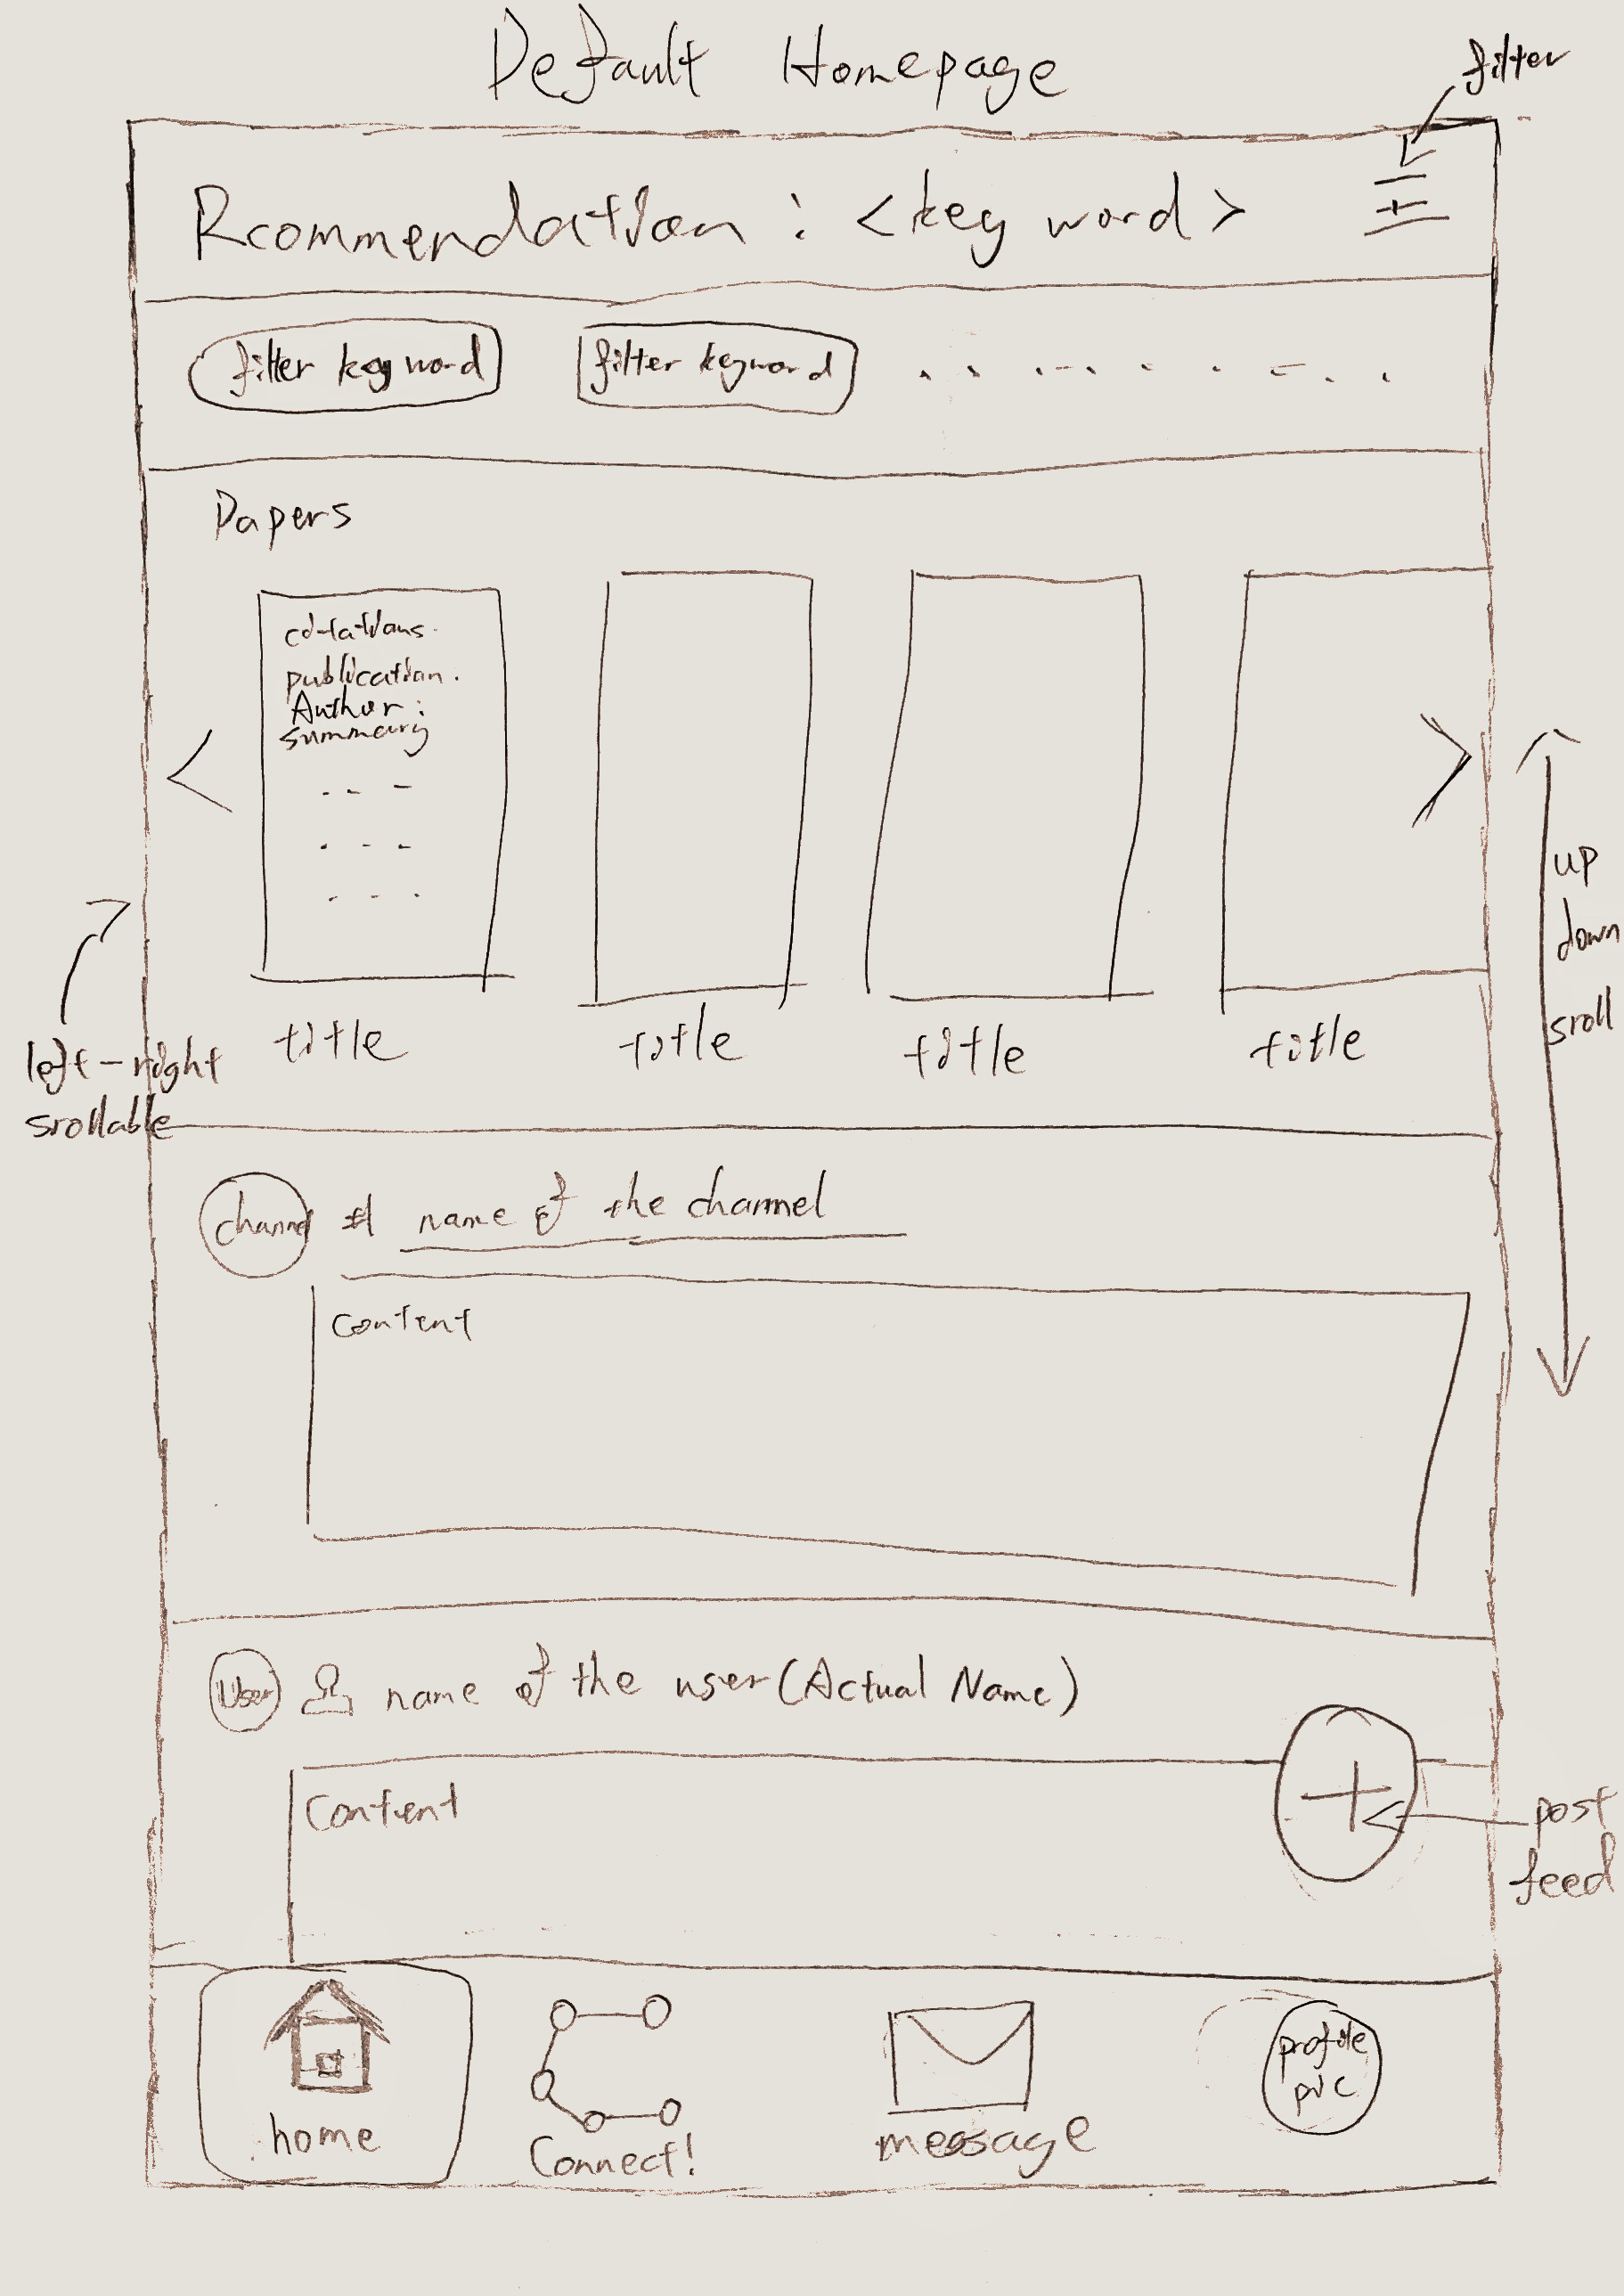 Default Homepage
filter
Rcommendation : <key word>
filter key word
filter keyword
Papers
citations.
publication.
Author :
summary
title
title
title
title
left-right
srollable
up
down
sroll
channel # name of the channel
content
User name of the user (Actual Name)
Content
+
post
feed
home
Connect!
message
profile
pic